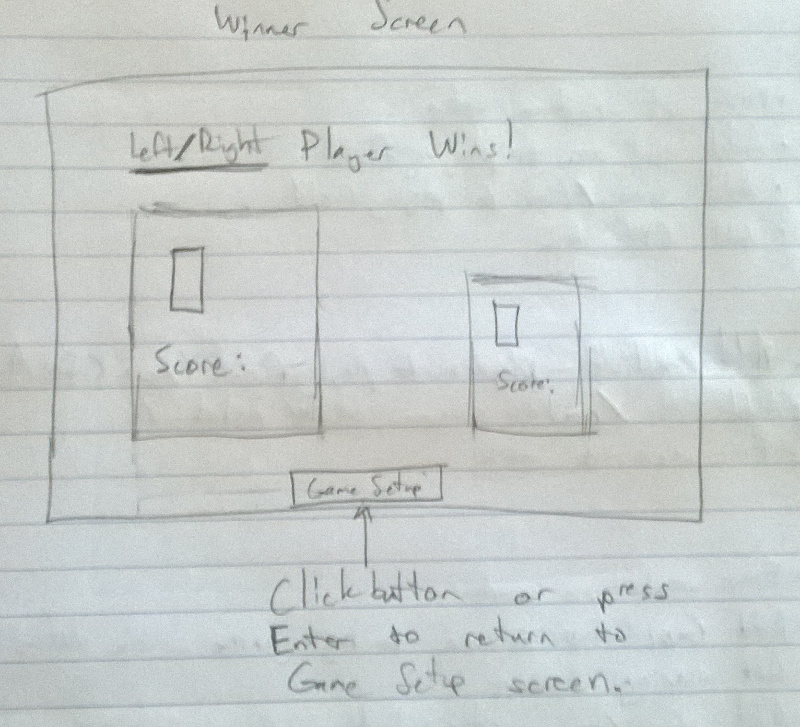 Winner Screen
Left/Right Player Wins!
Score:
Score:
Game Setup
Click button or press
Enter to return to
Game Setup screen.